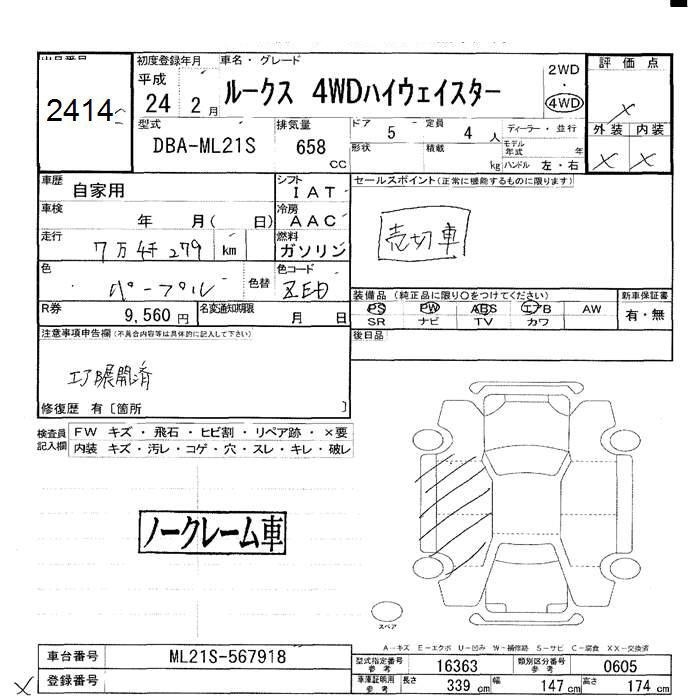 初度登録年月 車名・グレード
評価点
2414
平成 24 年 2 月
ルークス 4WDハイウェイスター
2WD ・ 4WD
×
型式 DBA-ML21S
排気量 658 CC
ドア 5 定員 4 人
ディーラー・並行
外装 内装
形状 積載 kg
モデル年式 年
ハンドル 左・右
× ×
車歴 自家用
シフト IAT
セールスポイント(正常に機能するものに限ります)
車検 年 月( 日)
冷房 AAC
売切車
走行 7万4千279 km
燃料 ガソリン
色 パープル 色替
色コード ZED
R券 9,560 円
名変通知期限 月 日
装備品 (純正品に限り○をつけてください)
新車保証書
PS PW ABS エアB AW
有・無
SR ナビ TV カワ
注意事項申告欄(不具合内容等は具体的に記入して下さい)
後日品
エアB展開済
修復歴 有〔箇所 〕
検査員記入欄
FW キズ・飛石・ヒビ割・リペア跡・×要
内装 キズ・汚レ・コゲ・穴・スレ・キレ・破レ
ノークレーム車
スペア
A-キズ E-エクボ U-凹み W-補修跡 S-サビ C-腐食 XX-交換済
車台番号 ML21S-567918
型式指定番号 参考 16363
類別区分番号 参考 0605
登録番号
車庫証明用 参考 長さ 339 cm 幅 147 cm 高さ 174 cm
×